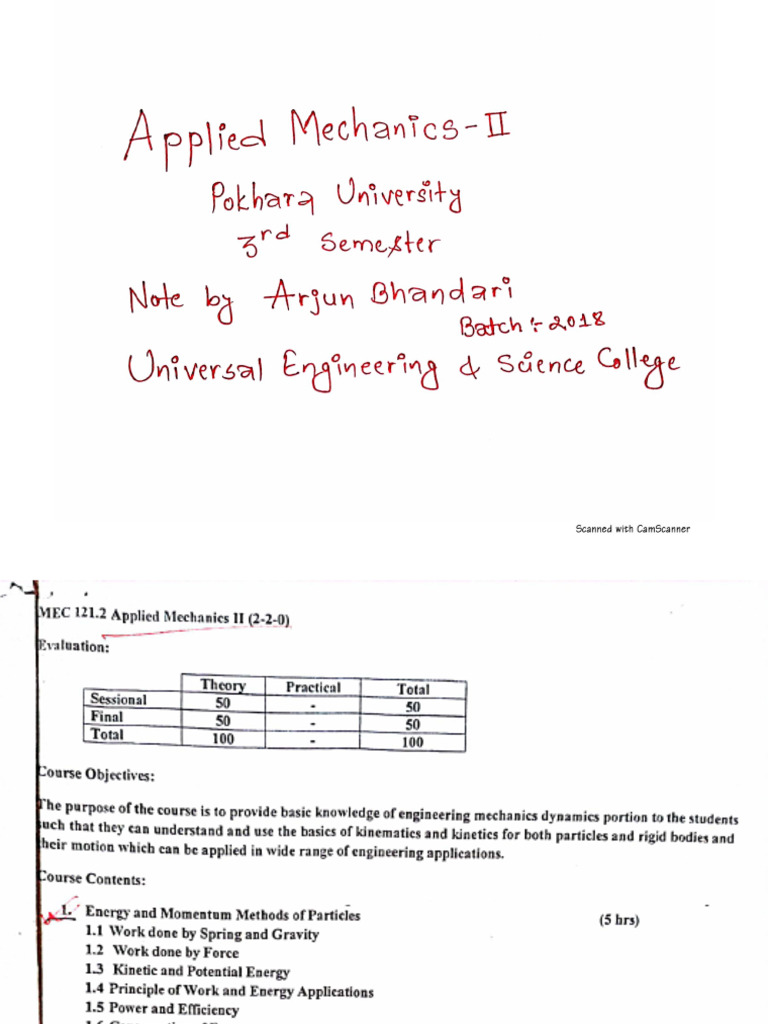 Applied Mechanics-II
Pokhara University
3rd Semester
Note by Arjun Bhandari
Batch :- 2018
Universal Engineering & Science College
Scanned with CamScanner
MEC 121.2 Applied Mechanics II (2-2-0)
Evaluation:
Theory Practical Total
Sessional 50 - 50
Final 50 - 50
Total 100 - 100
Course Objectives:
The purpose of the course is to provide basic knowledge of engineering mechanics dynamics portion to the students
such that they can understand and use the basics of kinematics and kinetics for both particles and rigid bodies and
their motion which can be applied in wide range of engineering applications.
Course Contents:
1. Energy and Momentum Methods of Particles (5 hrs)
1.1 Work done by Spring and Gravity
1.2 Work done by Force
1.3 Kinetic and Potential Energy
1.4 Principle of Work and Energy Applications
1.5 Power and Efficiency